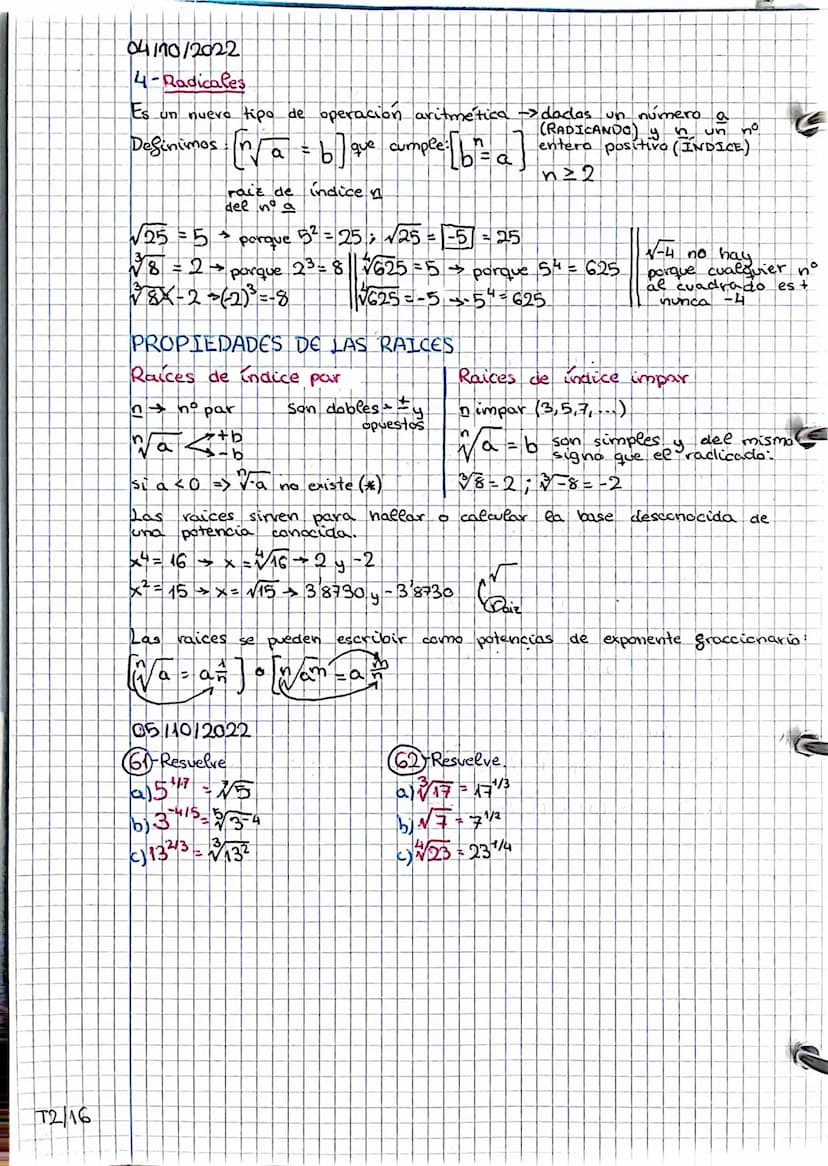 04/10/2022
4-Radicales
Es un nuevo tipo de operación aritmética → dados un número a
(RADICANDO) y n un nº
Definimos: [ⁿ√a = b] que cumple: [bⁿ = a] entero positivo (ÍNDICE)
n ≥ 2
raiz de índice n
del nº a
√25 = 5 → porque 5² = 25; √25 = -5 = 25
∛8 = 2 → porque 2³ = 8 || ∜625 = 5 → porque 5⁴ = 625
∛8 -2 → (-2)³ = -8 || ∜625 = -5 → -5⁴ = 625
√-4 no hay
porque cualquier nº
al cuadrado es +
nunca -4
PROPIEDADES DE LAS RAICES
Raíces de índice par
n → nº par son dobles → ± y
opuestos
ⁿ√a +b
-b
si a < 0 => ⁿ√-a no existe (*)
Raices de índice impar
n impar (3,5,7,...)
ⁿ√a = b son simples y del mismo
signo que el radicado:
∛8 = 2 ; ∛-8 = -2
Las raices sirven para hallar o calcular la base desconocida de
una potencia conocida.
x⁴ = 16 → x = ∜16 → 2 y -2
x² = 15 → x = √15 → 3'8730 y -3'8730
√
Raiz
Las raices se pueden escribir como potencias de exponente fraccionario:
[ⁿ√a = a^1/n] o [ⁿ√aᵐ = a^m/n]
05/10/2022
61-Resuelve
a) 5^1/7 = ⁷√5
b) 3^-4/5 = ⁵√3⁻⁴
c) 13^2/3 = ∛13²
62-Resuelve.
a) ∛17 = 17^1/3
b) √7 = 7^1/2
c) ∜23 = 23^1/4
T2/16